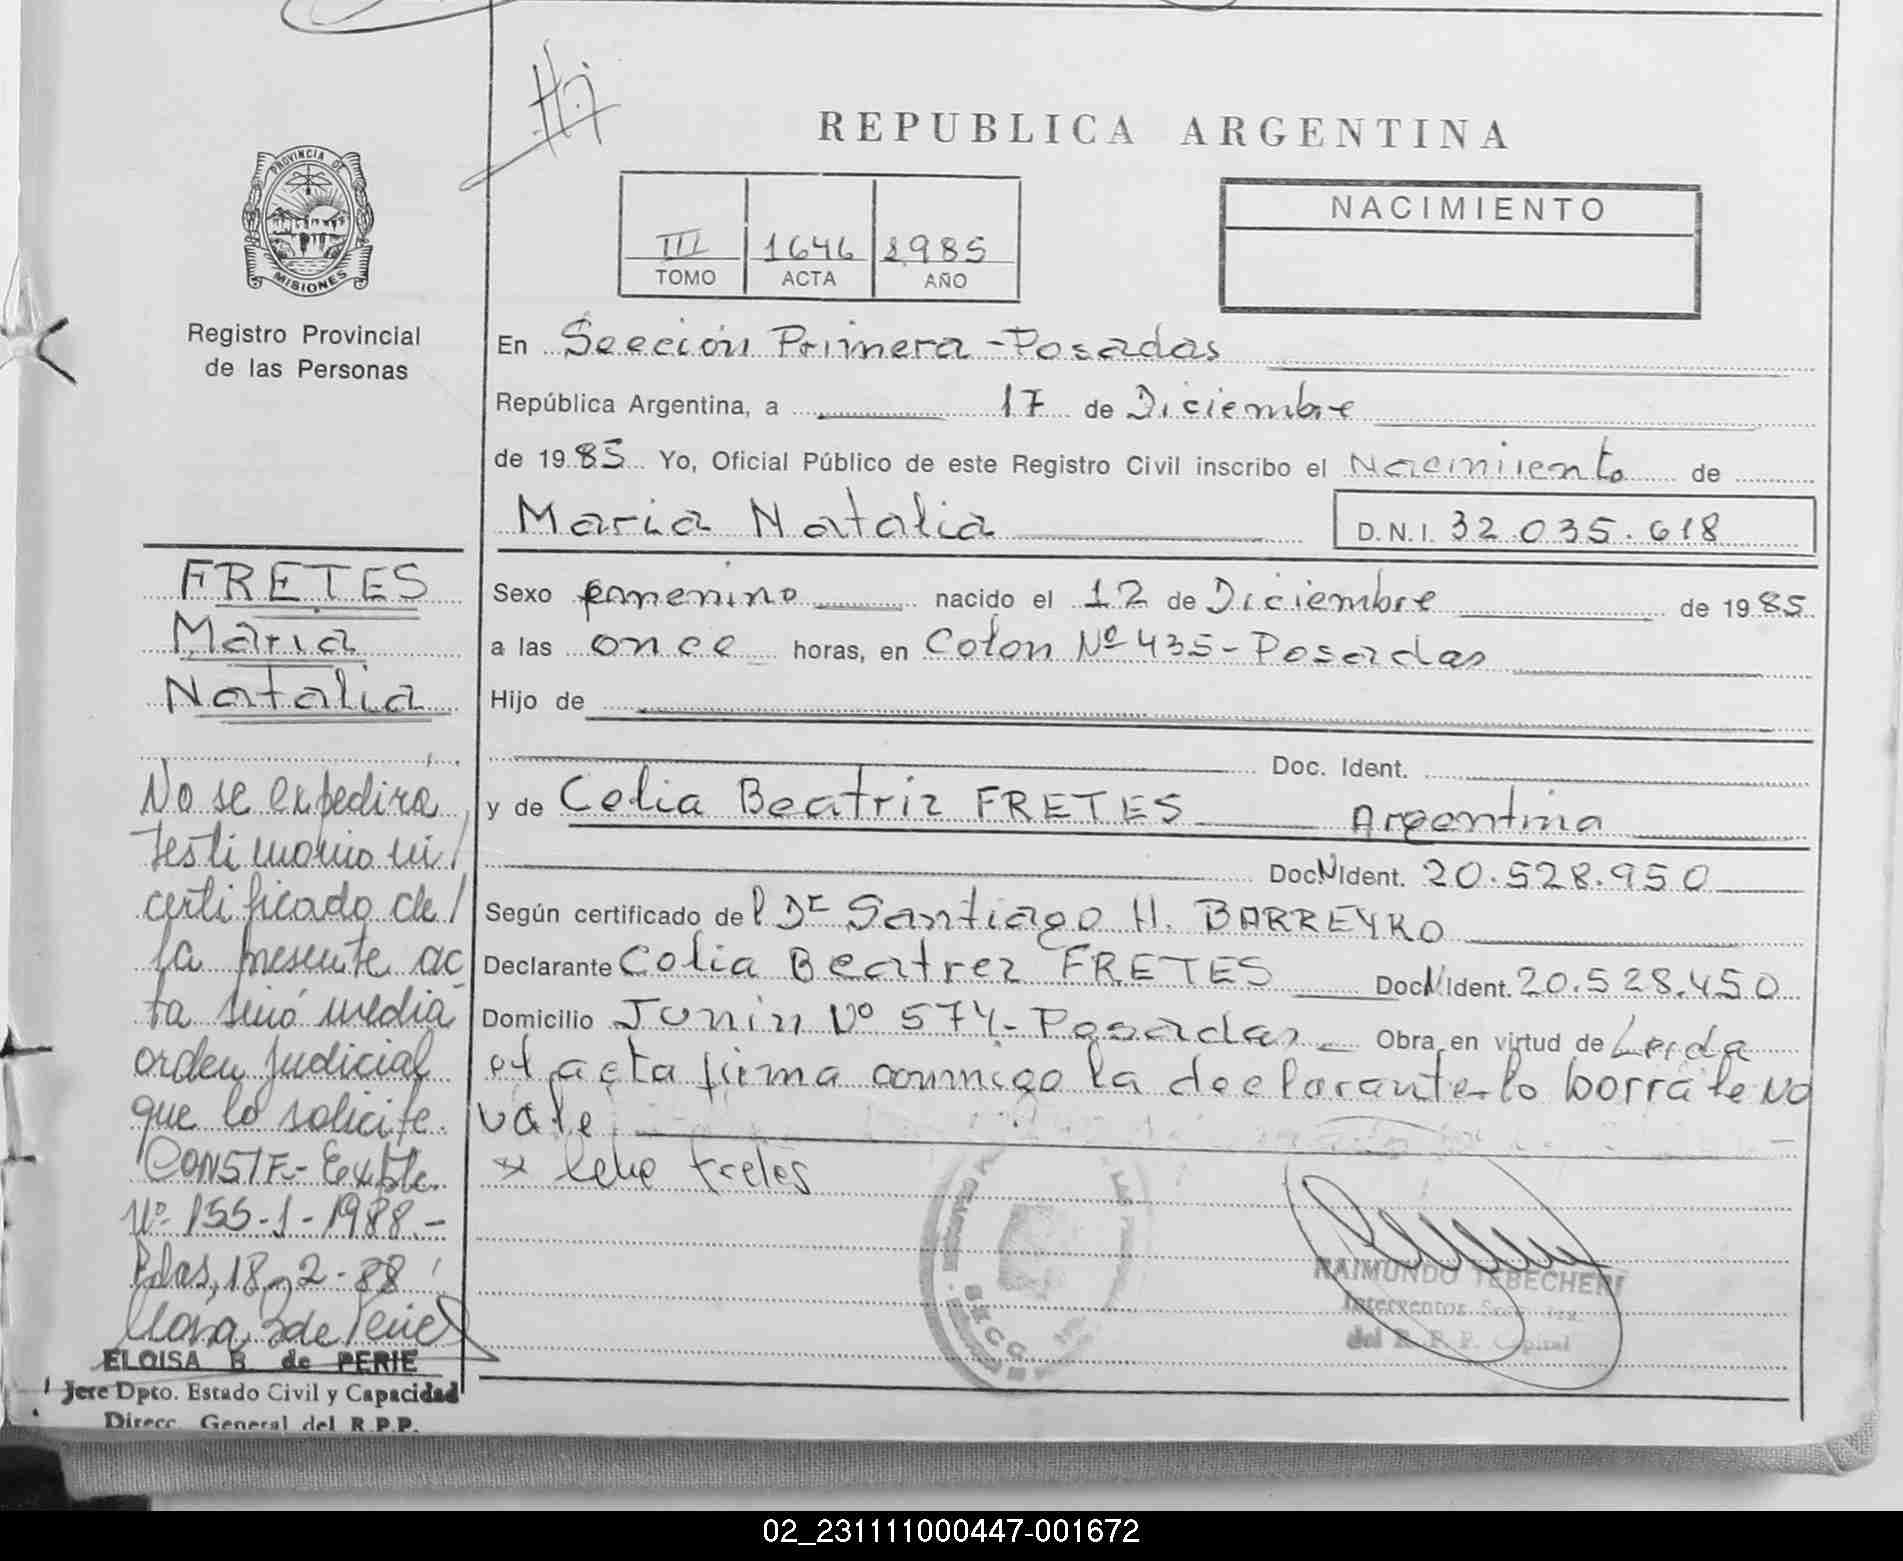 REPUBLICA ARGENTINA
PROVINCIA DE
MISIONES
Registro Provincial
de las Personas
III 1646 1985
TOMO ACTA AÑO
NACIMIENTO
En Sección Primera - Posadas
República Argentina, a 17 de Diciembre
de 1985 Yo, Oficial Público de este Registro Civil inscribo el Nacimiento de
Maria Natalia D.N.I. 32.035.618
FRETES
Maria
Natalia
Sexo femenino nacido el 12 de Diciembre de 1985
a las once horas, en Colon Nº 435 - Posadas
Hijo de
Doc. Ident.
y de Celia Beatriz FRETES Argentina
Doc.N Ident. 20.528.950
Según certificado del Dr Santiago H. BARREYRO
Declarante Celia Beatrez FRETES Doc.N Ident. 20.528.450
Domicilio Junin Nº 574 - Posadas - Obra en virtud de Leida
el acta firma conmigo la declarante - lo borrá le No
vale
x Celia Fretes
No se expedirá
testimonio ni /
certificado de /
la presente ac
ta sinó media
orden judicial
que lo solicite.
CONSTE.- Expte.
Nº 155-1-1988.-
Pdas, 18-2-88
ELOISA B. de PERIE
Jefe Dpto. Estado Civil y Capacidad
Direcc. General del R.P.P.
RAIMUNDO TEBECHERI
Interventor
del R. P. P. Capital
02_231111000447-001672